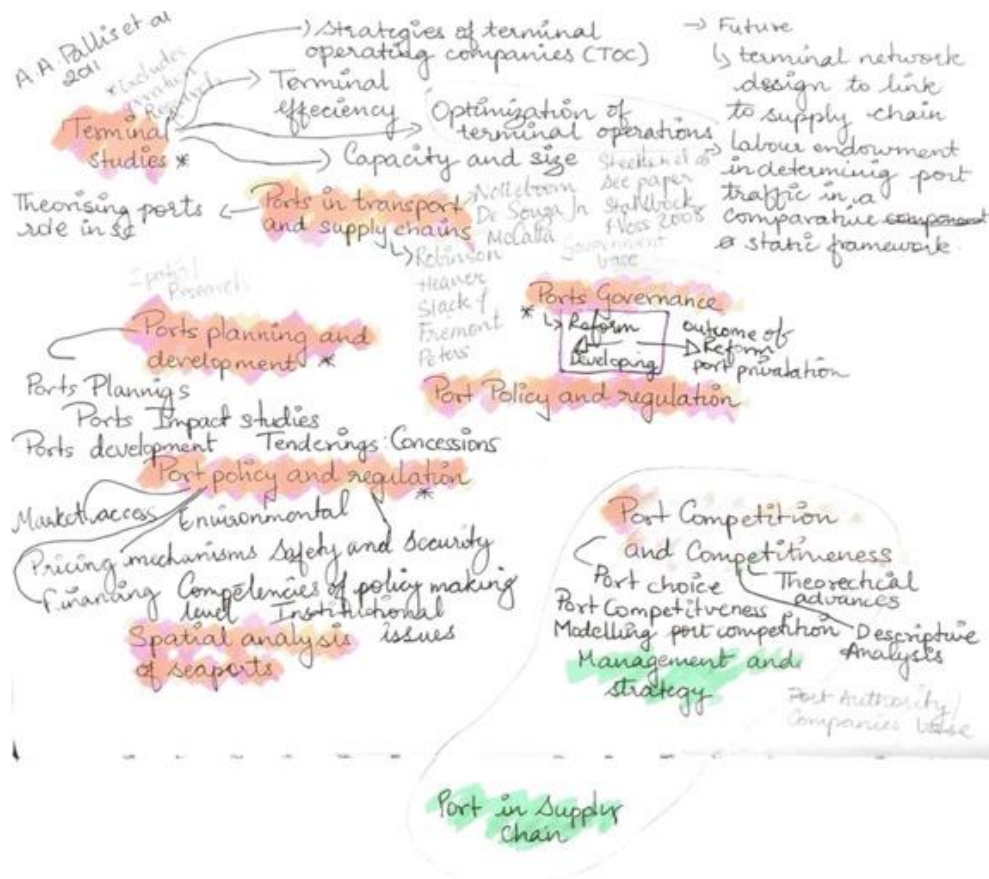 A.A. Pallis et al
2011
*Excludes
Terminal
studies *
→ Strategies of terminal
operating companies (TOC)
→ Terminal
effeciency
→ Optimization of
terminal operations
→ Capacity and size
→ Future
↳ terminal network
design to link
to supply chain
→ Labour endowment
in determinig port
traffic in a
comparative component
static framework.
Theorising ports
role in SC
← Ports in transport
and supply chains
Notteboom
De Souza Jr
McCalla
↳ Robinson
Heaver
Slack &
Fremont
Peters
see paper
Stahlbock
Voss 2008
Government
base
Spatial
Research
Ports planning and
development *
Ports Plannigs
Ports Impact studies
Ports development Tenderings: Concessions
Ports Governance
* ↳ Reform
Developing
outcome of
Reform
port privatation
Port Policy and regulation
Port policy and regulation
*
Market access Environmental
Pricing mechanisms Safety and Security
Financing Competencies of policy making
level Institutional
issues
Spatial analysis
of seaports
Port Competition
and Competitiveness
Port choice
Port Competitveness
Modelling port competition
Theorectical
advances
Descriptive
Analysis
Management and
strategy
Port Authority/
Companies base
Port in Supply
Chain